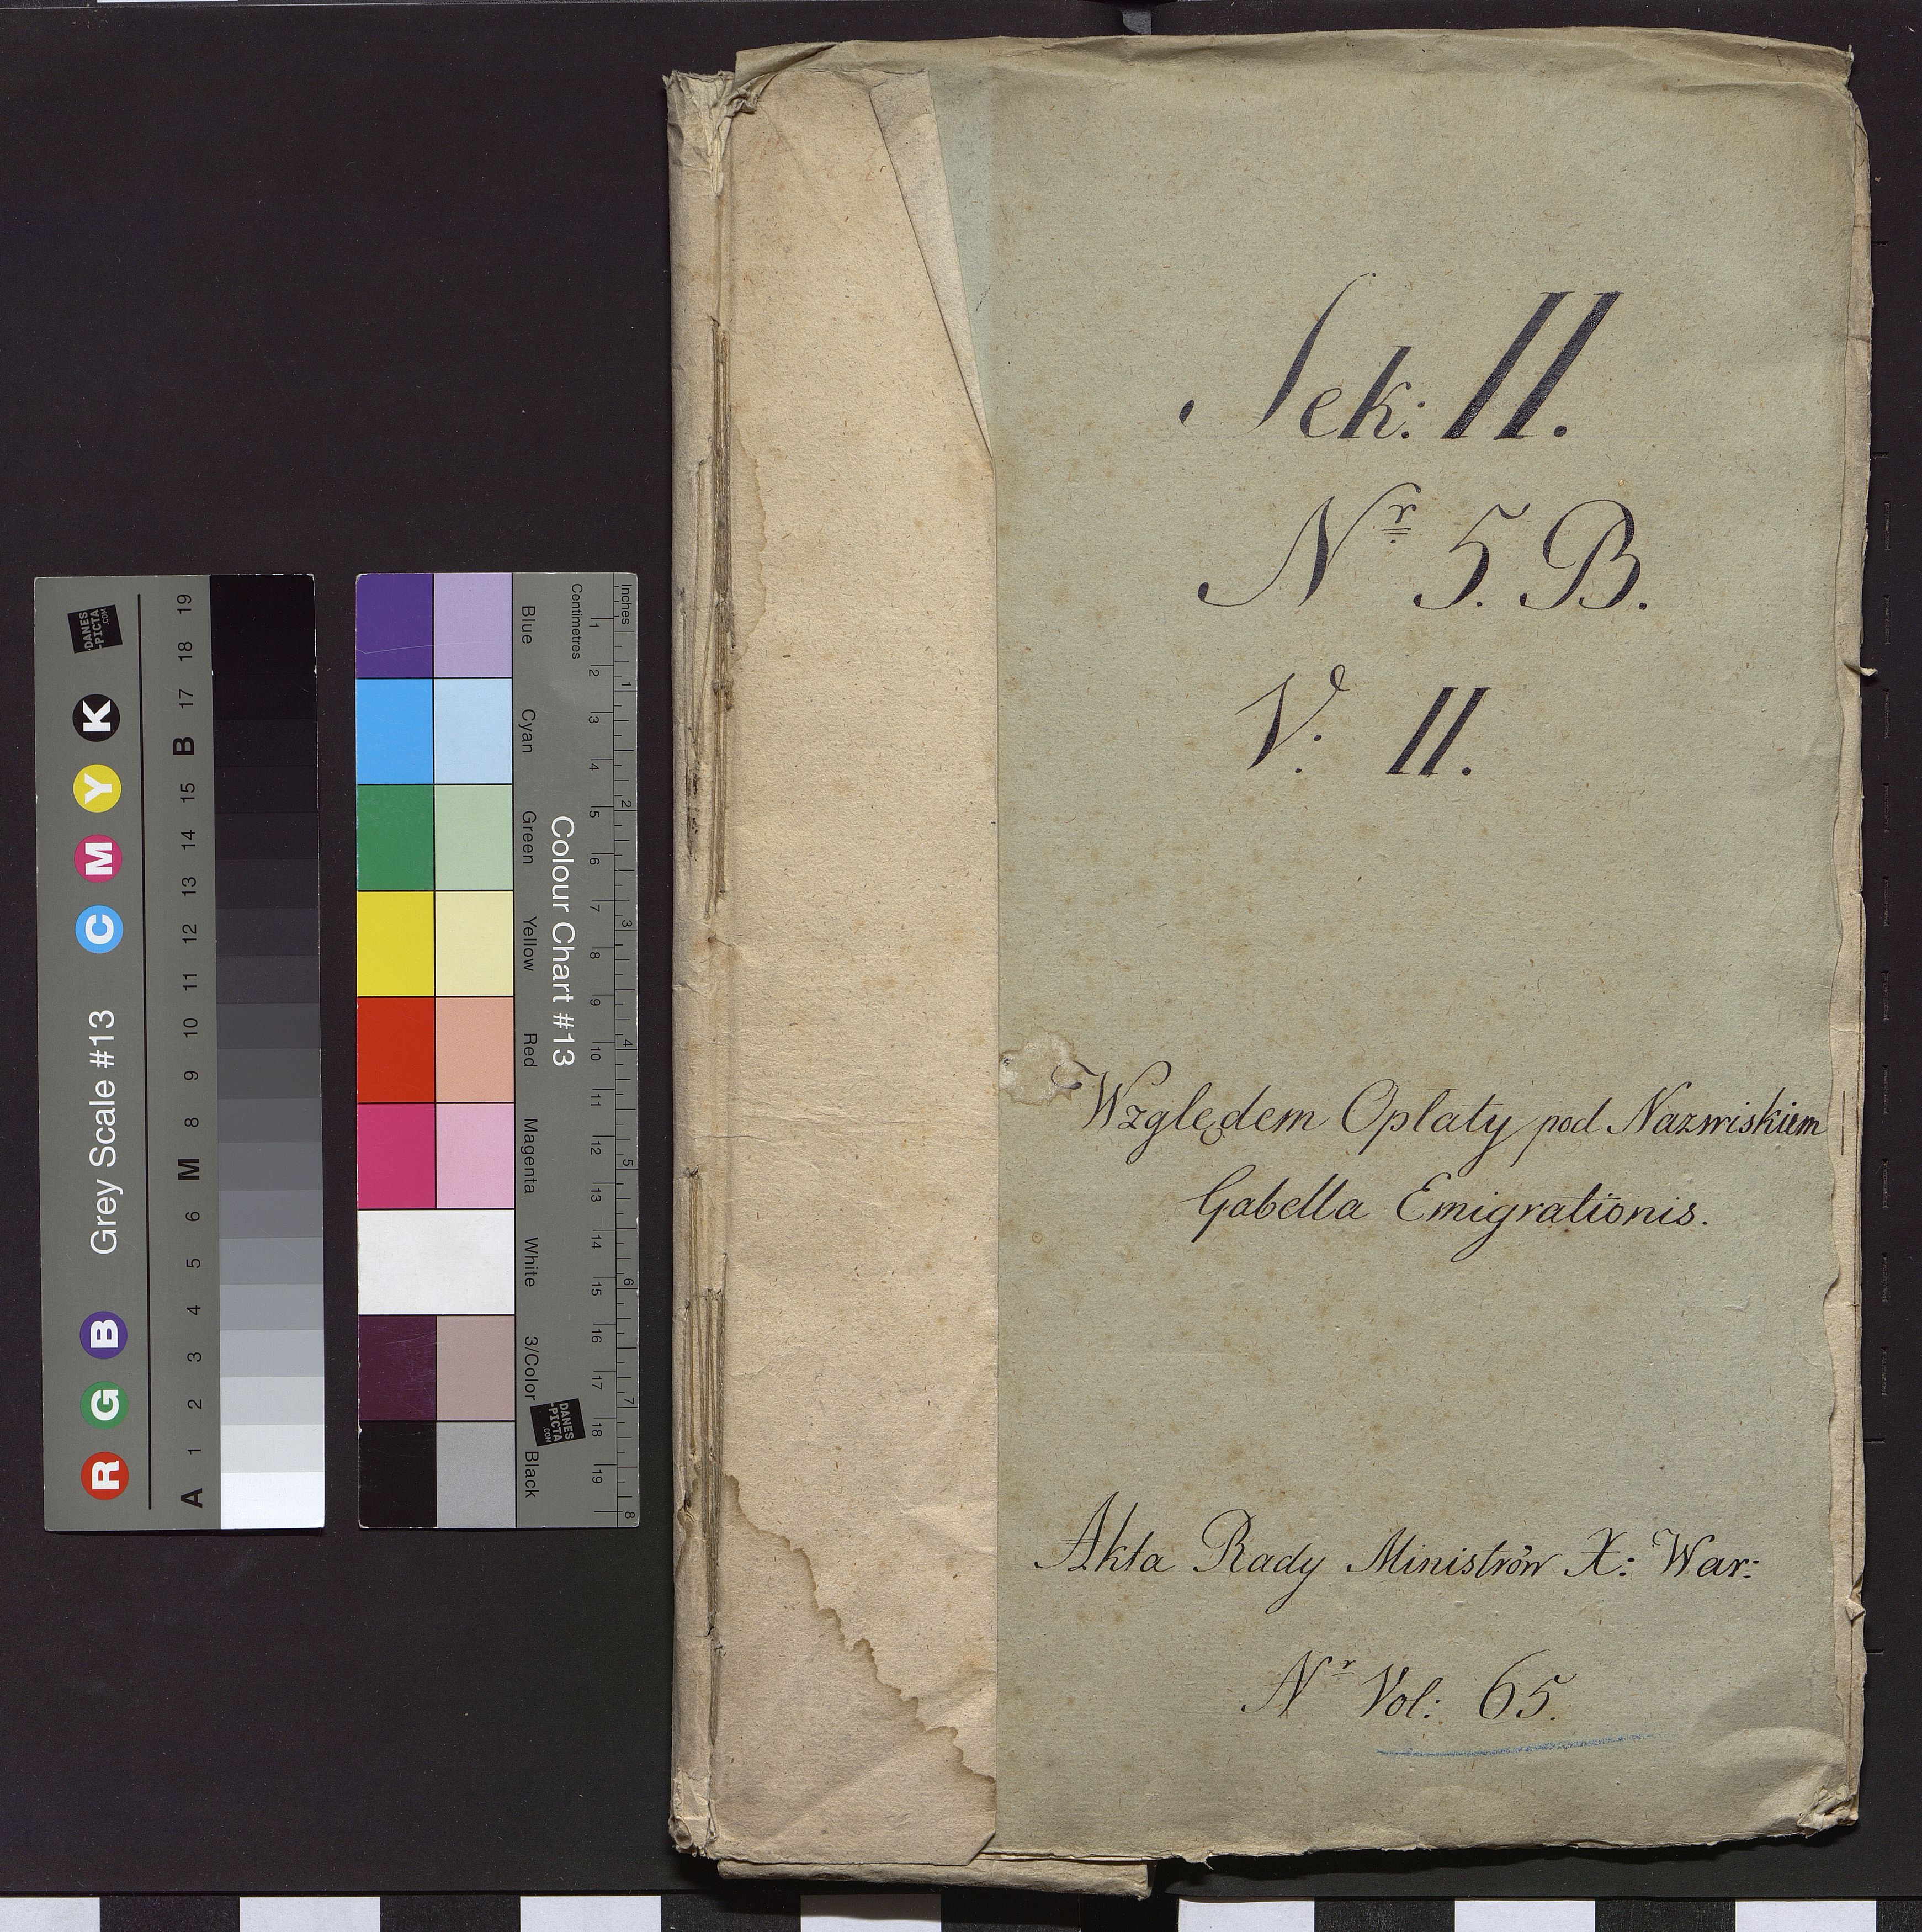 Sek: II.
Nr 5. B.
V. II.
Względem Opłaty pod Nazwiskiem
Gabella Emigrationis.
Akta Rady Ministrów X: War:
Nr Vol: 65.
Grey Scale #13
R G B C M Y K
A 1 2 3 4 5 6 M 8 9 10 11 12 13 14 15 B 17 18 19
DANES
-PICTA
.COM
Colour Chart #13
Blue Cyan Green Yellow Red Magenta White 3/Color Black
Centimetres
1 2 3 4 5 6 7 8 9 10 11 12 13 14 15 16 17 18 19
Inches
1 2 3 4 5 6 7 8
DANES
-PICTA
.COM